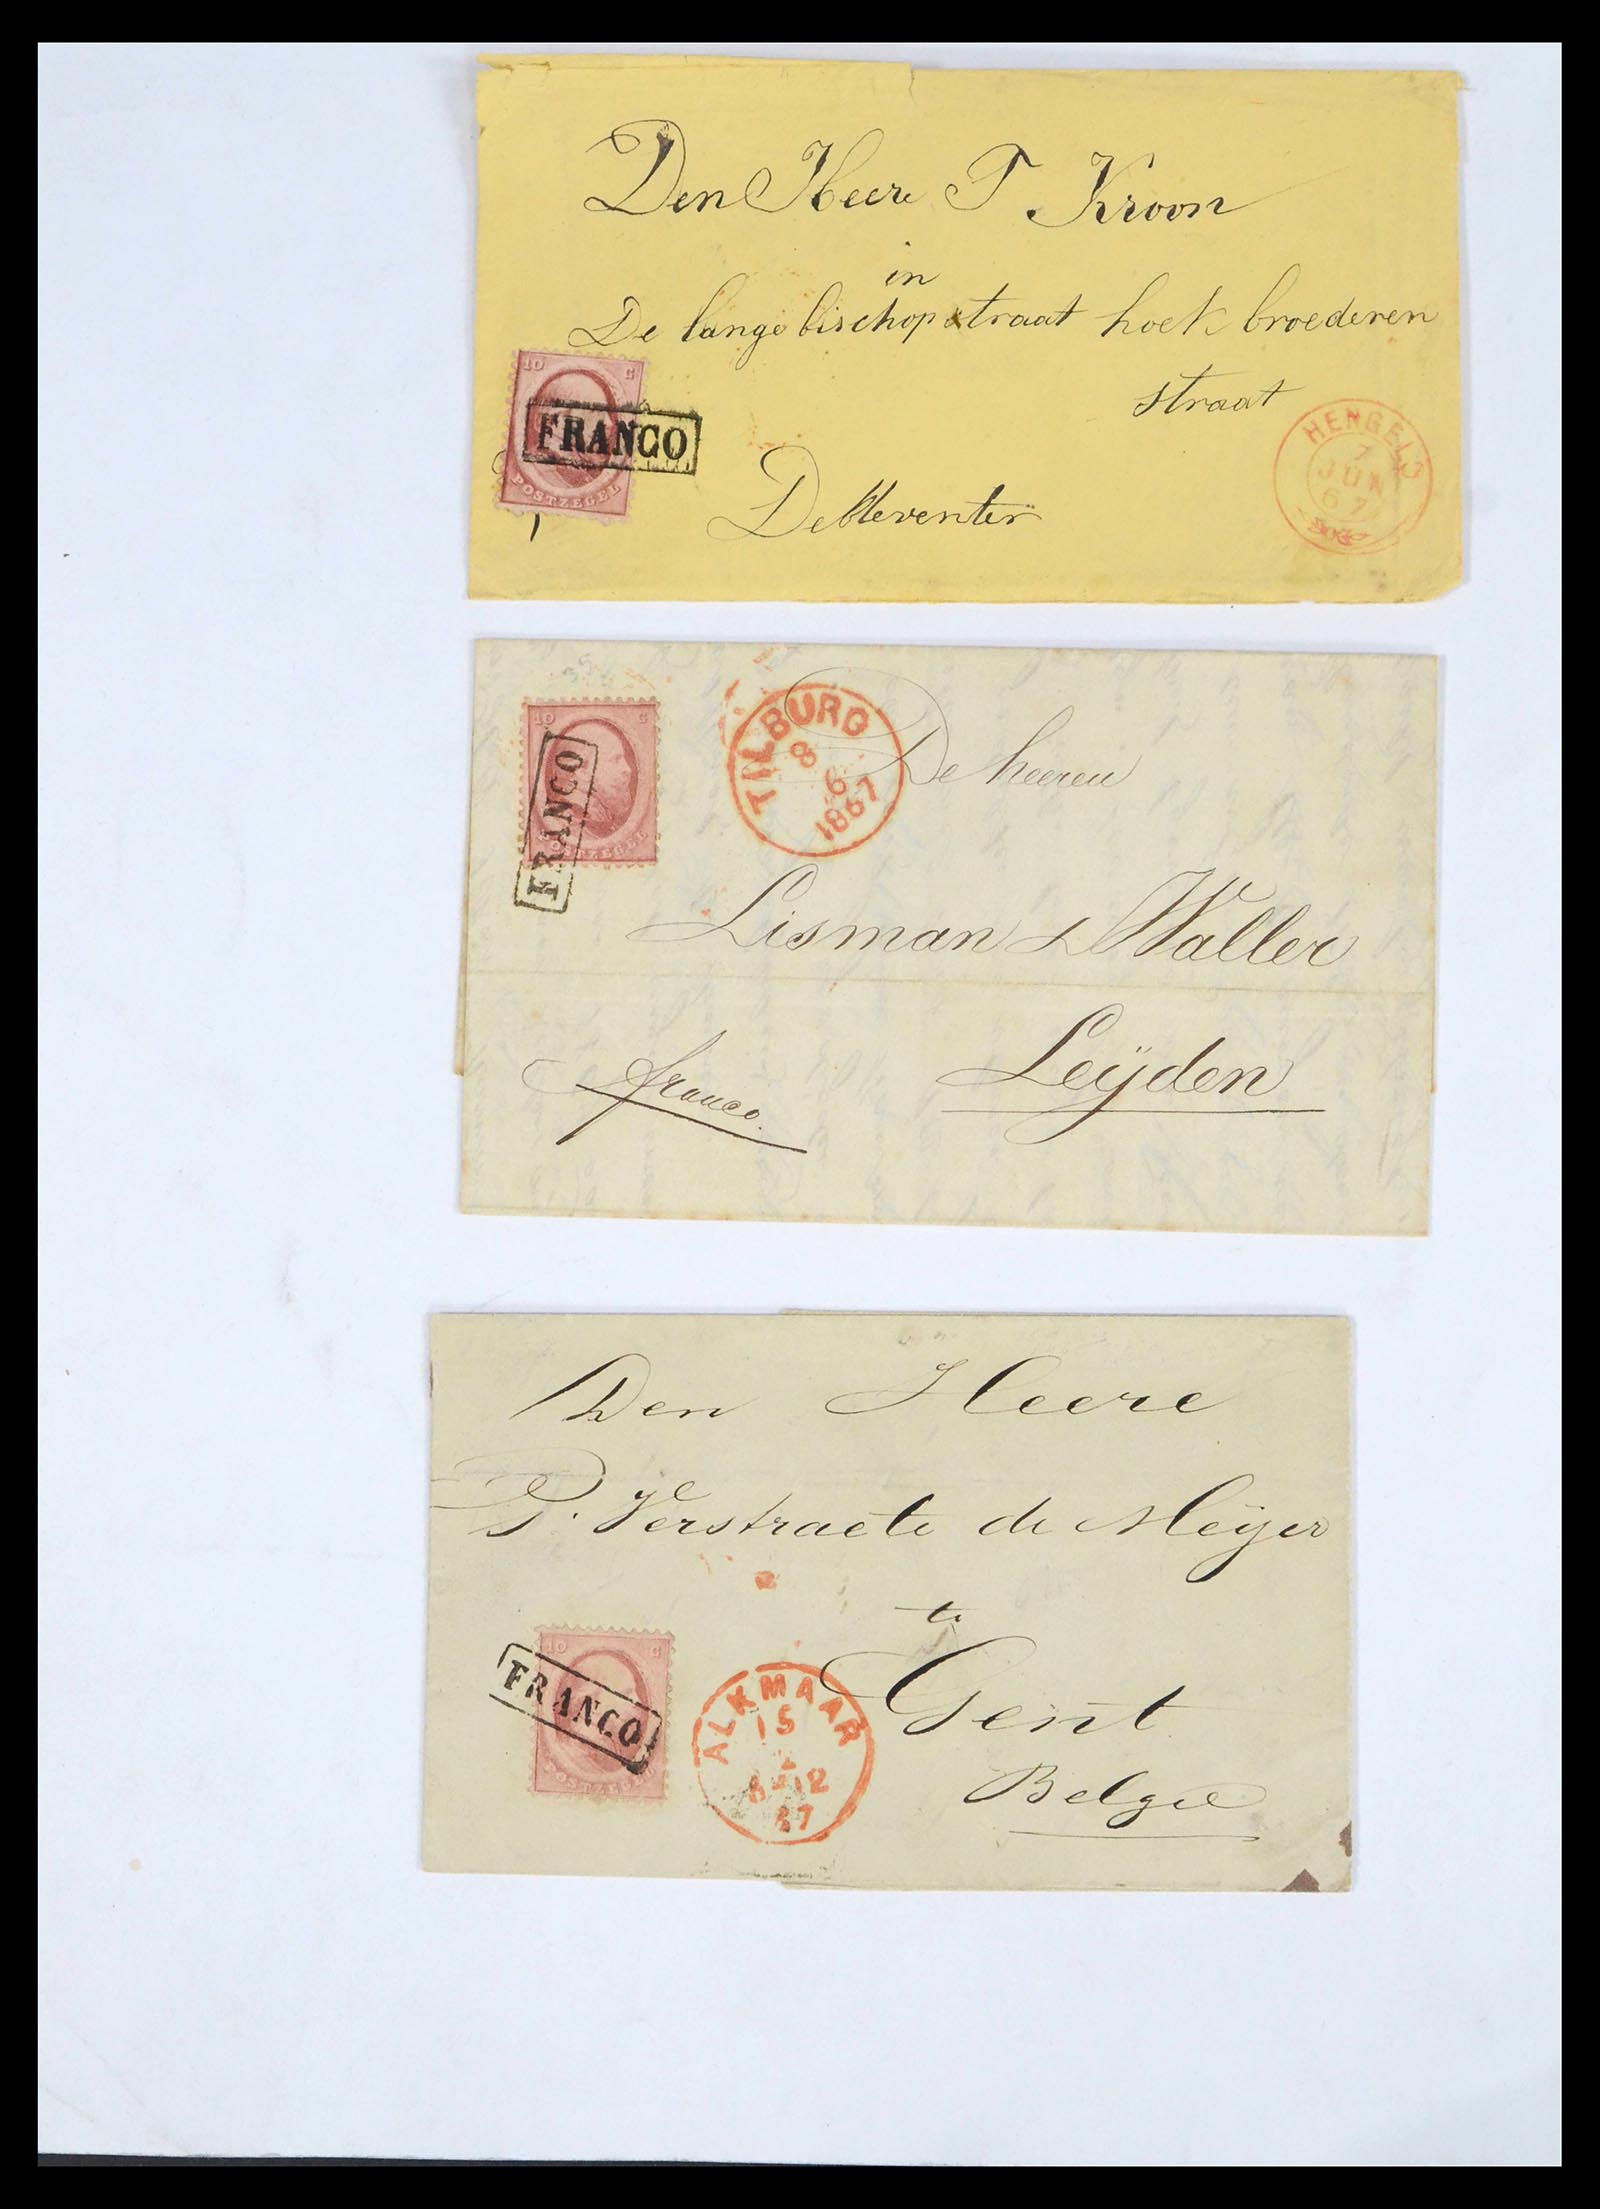 Den Heere P Kroon
in
De lange bischop straat hoek broederen
10 C
FRANCO
POSTZEGEL
straat
HENGELO
7
JUN
67
Deventer
10 C
FRANCO
POSTZEGEL
TILBURG
8
6
1867
De heeren
Lisman & Waller
Leÿden
franco.
Den Heere
P. Verstraete de Meÿer
te
Gent
Belgie
10 C
FRANCO
POSTZEGEL
ALKMAAR
15
8-12
67